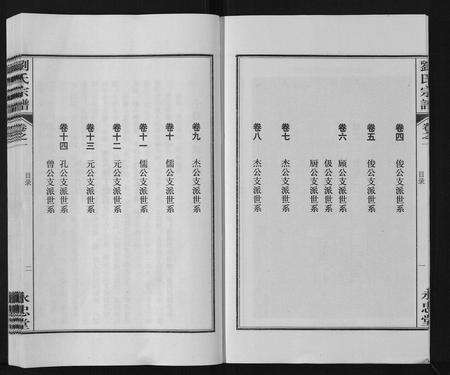 劉氏宗譜
卷之一
目录
一
永思堂
卷四 俊公支派世系
卷五 俊公支派世系
卷六 顾公支派世系
伋公支派世系
厨公支派世系
卷七 杰公支派世系
卷八 杰公支派世系
卷九 杰公支派世系
卷十 儒公支派世系
卷十一 儒公支派世系
卷十二 元公支派世系
卷十三 元公支派世系
卷十四 孔公支派世系
曾公支派世系
劉氏宗譜
卷之一
目录
二
永思堂